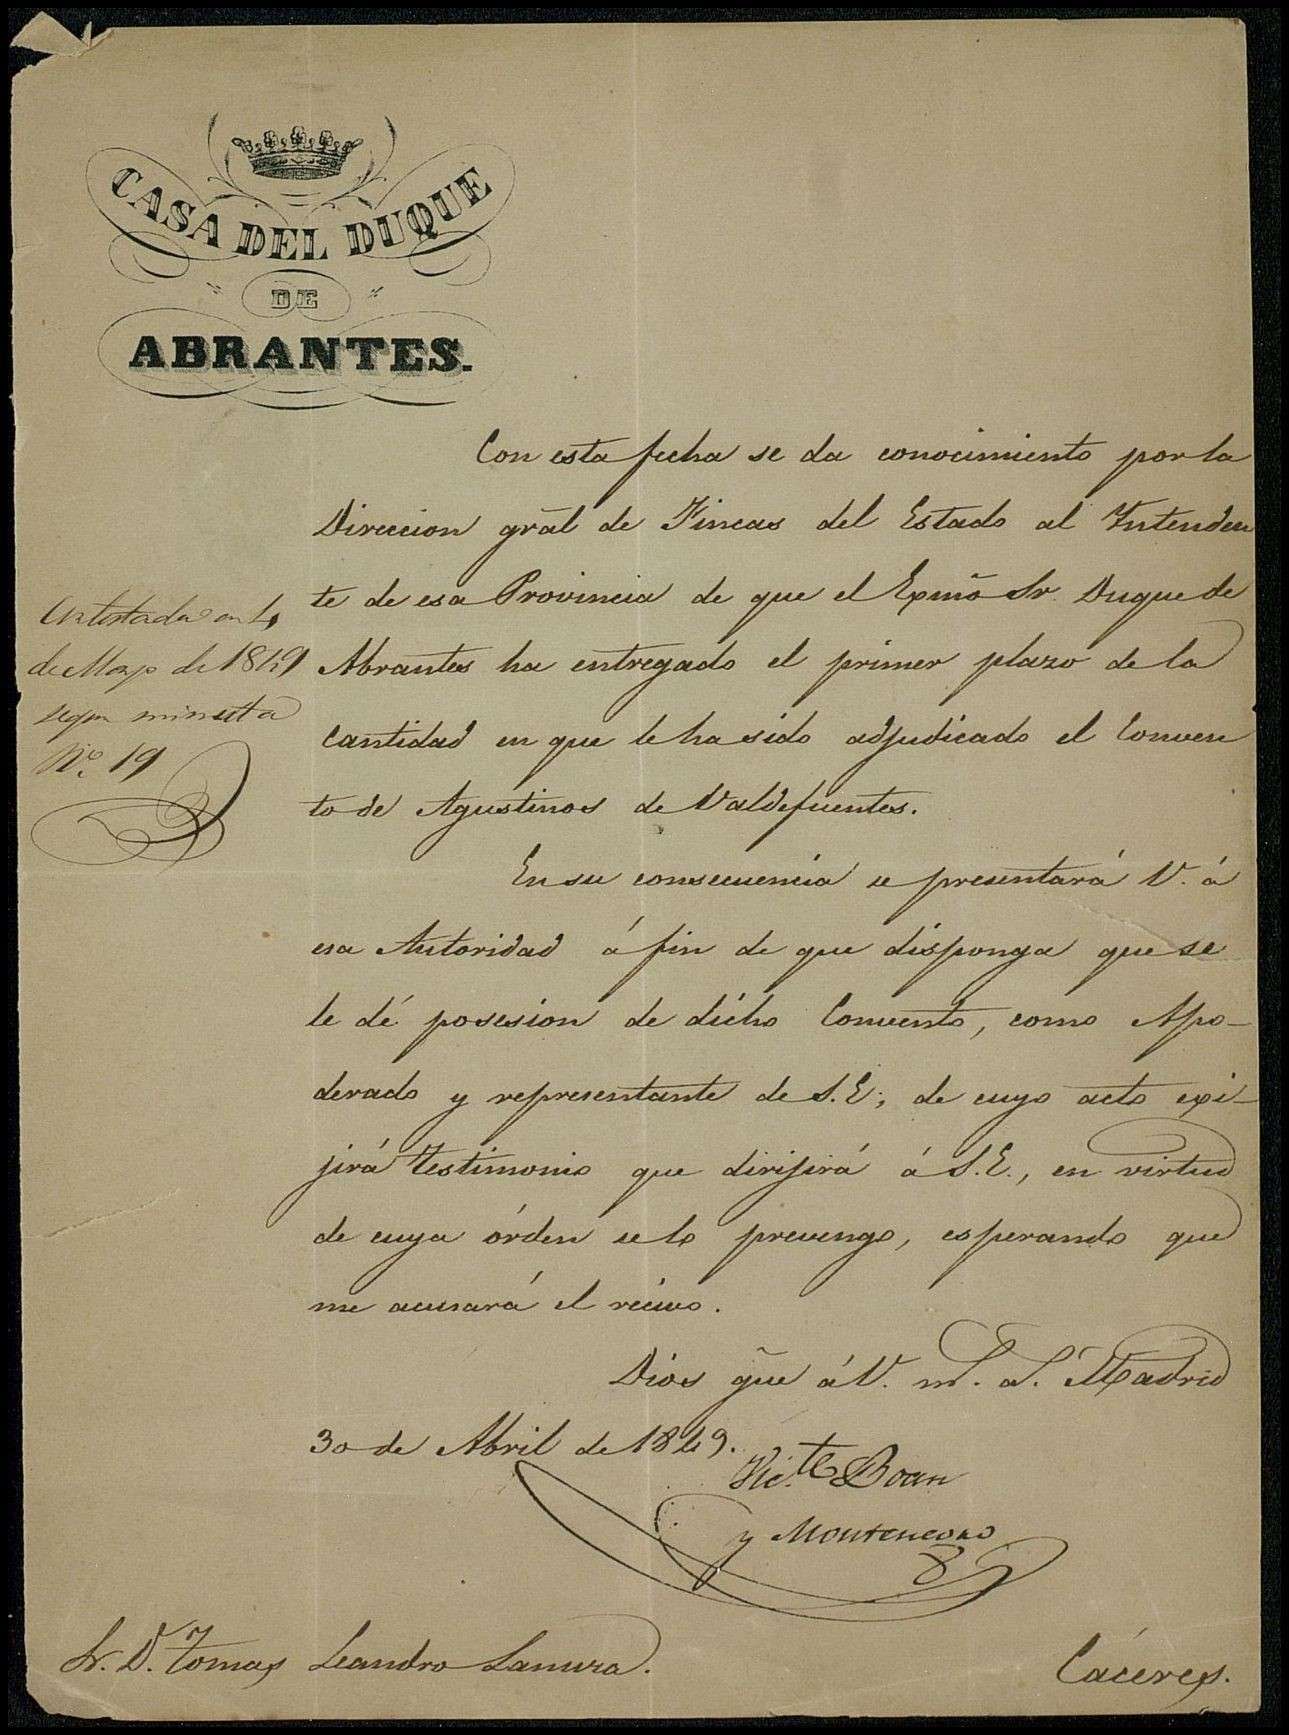 CASA DEL DUQUE
DE
ABRANTES.
Con esta fecha se da conocimiento por la
Direccion grãl de Fincas del Estado al Intenden
te de esa Provincia de que el Exmõ Sr. Duque de
Abrantes ha entregado el primer plazo de la
cantidad en que le ha sido adjudicado el Conven
to de Agustinos de Valdefuentes.
En su consecuencia se presentará V. á
esa Autoridad á fin de que disponga que se
le dé posesion de dicho Convento, como Apo-
derado y representante de S.E., de cuyo acto exi-
jirá testimonio que dirijirá á S.E., en virtud
de cuya órden se lo prevengo, esperando que
me acusará el recivo.
Dios gũe á V. m. a. Madrid
30 de Abril de 1849.
Vic.te Boan
y Montenegro
Contestada en 4
de Mayo de 1849
segun minuta
Nº. 19
Sr. D. Tomas Leandro
Cáceres.